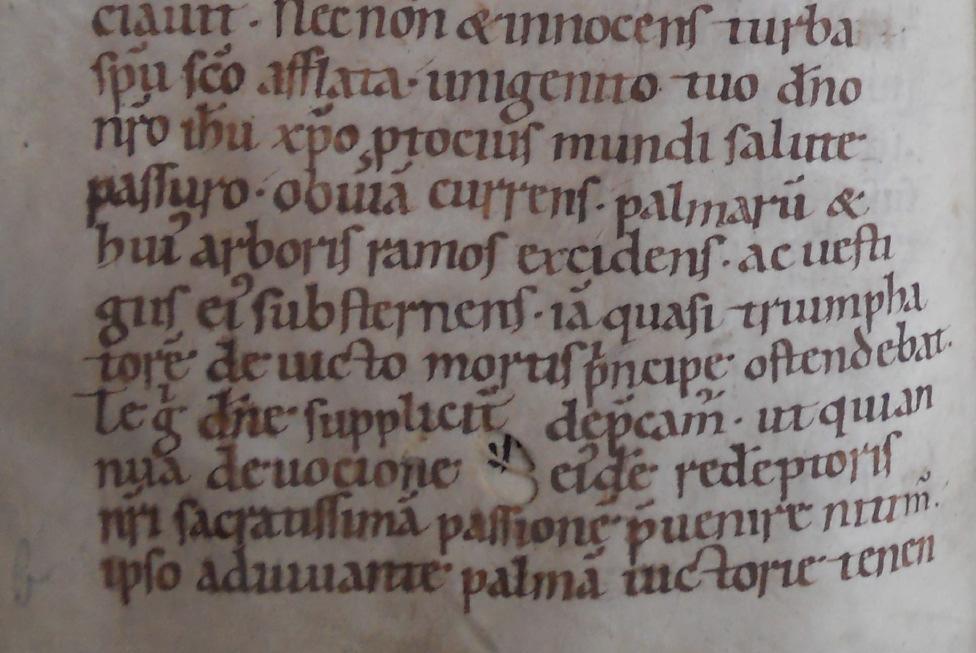 ciauit · Nec non & innocens turba
sp̄u sc̄o afflata · unigenito tuo dn̄o
nr̄o ih̄u xp̄o ptocius mundi salute
passuro · obuiā currens · palmarū &
hui᾿ arboris ramos excidens · ac uesti
giis ei᾿ substernens · iā quasi triumpha
torē de uicto mortis pⁱncipe ostendebat.
Te gⁱ dn̄e supplicit̄ dep̄cam᾿ · ut qui an
nua deuocione ei᾿dē redēptoris
nr̄i sacratissimā passionē p̄uenire nitim᾿.
ipso adiuuante palmā uictorie tenen